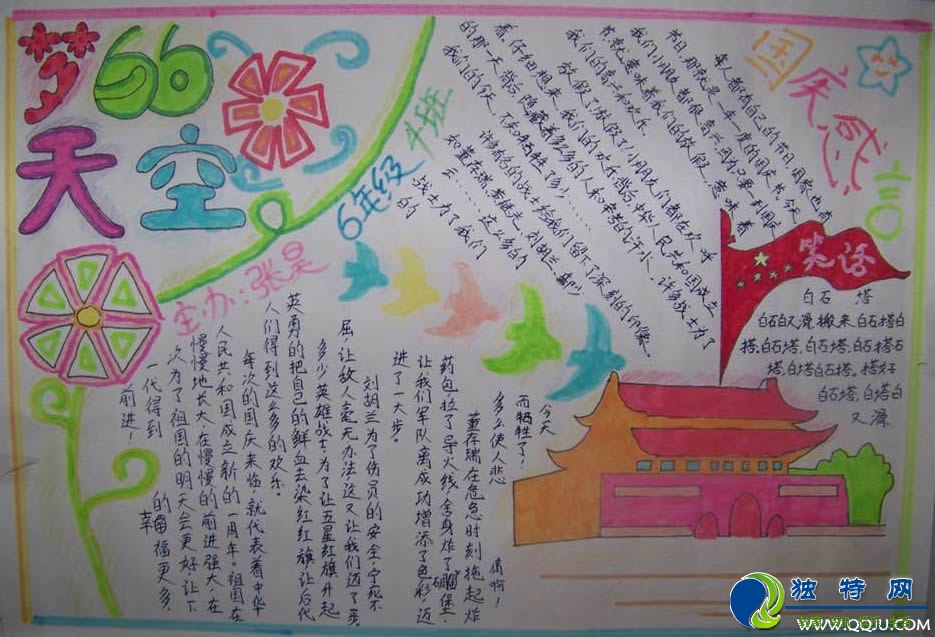 梦的
天空
6年级
4班
主办:张昊
国庆感言
每人都有自己的节日,国家也有
节日,那就是一年一度的国庆节,今天
我们小朋友都很高兴,因为只要到国庆
节就意味着我们的放假,意味着
我们的高兴和欢乐。
放假了,放假了!小朋友们都在欢呼
着,仔细想来,我们的欢庆背后,中华人民共和国成立
的那一天背后,隐藏着多少的人和辛勤的汗水,许多战士为了
我们的今天,不知牺牲了多少……
许多有名的战士给我们留下了深刻的印象,
如董存瑞、黄继光、刘胡兰
……这么多的
战士为了我们
的
今天
而牺牲了,
多么使人悲
痛啊!
董存瑞在危急时刻抱起炸
药包拉了导火线,舍身炸了碉堡,
让我们军队离成功增添了色彩,迈
进了一大步。
刘胡兰为了伤员的安全,宁死不
屈,让敌人毫无办法,这又让我们迈了一步。
多少英雄战士,为了让五星红旗升起
英勇的把自己的鲜血去染红红旗,让后代
人们得到这么多的欢乐。
每次的国庆来临,就代表着中华
人民共和国成立新的一周年。祖国在
慢慢地长大,在慢慢的前进强大,在
次为了祖国的明天会更好,让下
一代得到的幸福更多,
前进!
笑语
白石塔
白石白又滑,搬来白石搭白
塔,白石塔,白石塔,白石搭石
塔,白塔白石搭,搭好
白石塔,白塔白
又滑
独特网
WWW.QQJU.COM